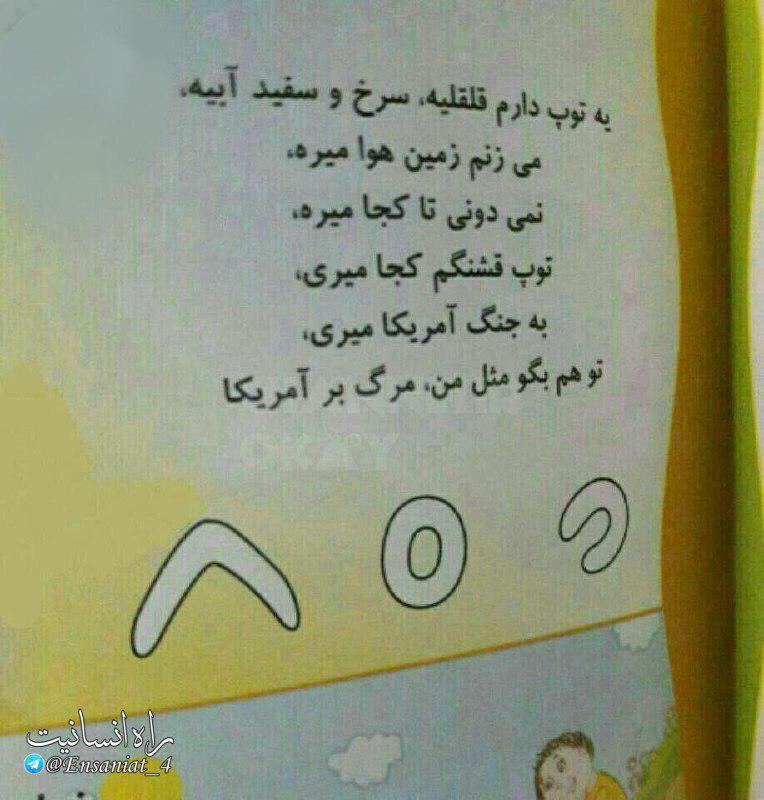 یه توپ دارم قلقلیه، سرخ و سفید آبیه،
می زنم زمین هوا میره،
نمی دونی تا کجا میره،
توپ قشنگم کجا میری،
به جنگ آمریکا میری،
تو هم بگو مثل من، مرگ بر آمریکا
OKAY
راه انسانیت
@Ensaniat_4